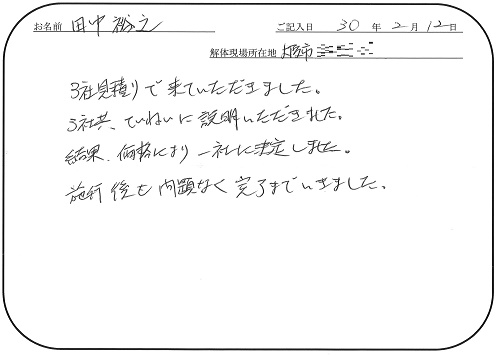 お名前 田中 裕之 ご記入日 30 年 2 月 12 日
解体現場所在地
3社見積りで来ていただきました。
3社共、ていねいに説明いただきれた。
結果、価格により一社に決定しました。
施行後も問題なく完了までいきました。